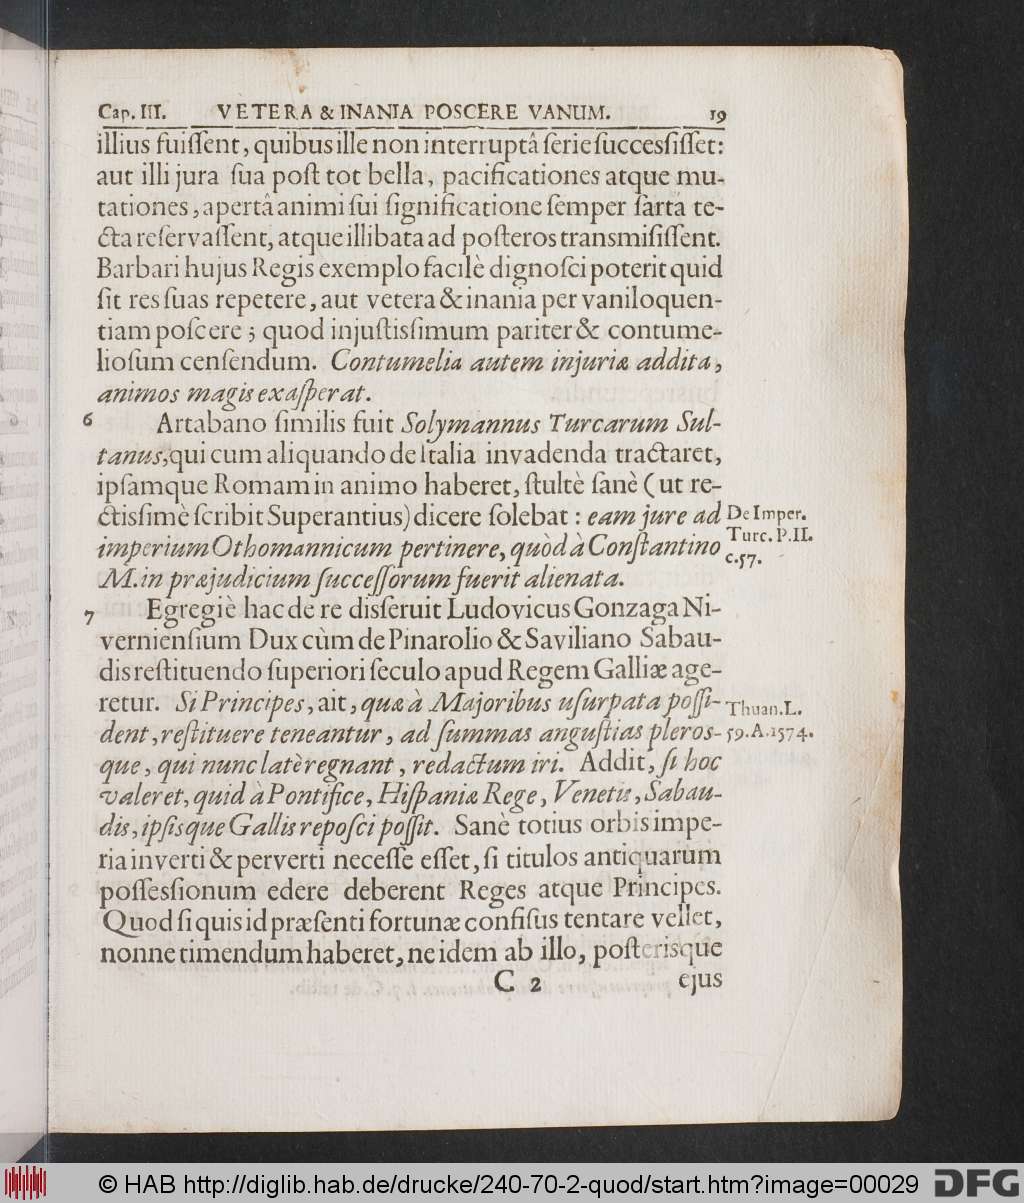 Cap. III. VETERA & INANIA POSCERE VANUM. 19
illius fuiſſent, quibus ille non interruptâ ſerie ſucceſsiſſet:
aut illi jura ſua poſt tot bella, pacificationes atque mu-
tationes, apertâ animi ſui ſignificatione ſemper ſarta te-
cta reſervaſſent, atque illibata ad poſteros transmiſiſſent.
Barbari hujus Regis exemplo facilè dignoſci poterit quid
ſit res ſuas repetere, aut vetera & inania per vaniloquen-
tiam poſcere; quod injuſtisſimum pariter & contume-
lioſum cenſendum. Contumelia autem injuriæ addita,
animos magis exaſperat.
6 Artabano ſimilis fuit Solymannus Turcarum Sul-
tanus, qui cum aliquando de Italia invadenda tractaret,
ipſamque Romam in animo haberet, ſtultè ſanè (ut re-
ctisſimè ſcribit Superantius) dicere ſolebat: eam jure ad
De Imper.
imperium Othomannicum pertinere, quòd à Conſtantino
Turc. P. II.
c. 57.
M. in præjudicium ſucceſſorum fuerit alienata.
7 Egregiè hac de re disſeruit Ludovicus Gonzaga Ni-
vernienſium Dux cùm de Pinarolio & Saviliano Sabau-
dis reſtituendo ſuperiori ſeculo apud Regem Galliæ age-
retur. Si Principes, ait, quæ à Majoribus uſurpata poſſi-
Thuan. L.
dent, reſtituere teneantur, ad ſummas anguſtias pleros-
59. A. 1574.
que, qui nunc latè regnant, redactum iri. Addit, ſi hoc
valeret, quid à Pontifice, Hiſpaniæ Rege, Venetis, Sabau-
dis, ipſisque Gallis repoſci poſſit. Sanè totius orbis impe-
ria inverti & perverti neceſſe eſſet, ſi titulos antiquarum
poſſesſionum edere deberent Reges atque Principes.
Quod ſi quis id præſenti fortunæ confiſus tentare vellet,
nonne timendum haberet, ne idem ab illo, poſterisque
C 2 ejus
© HAB http://diglib.hab.de/drucke/240-70-2-quod/start.htm?image=00029
DFG